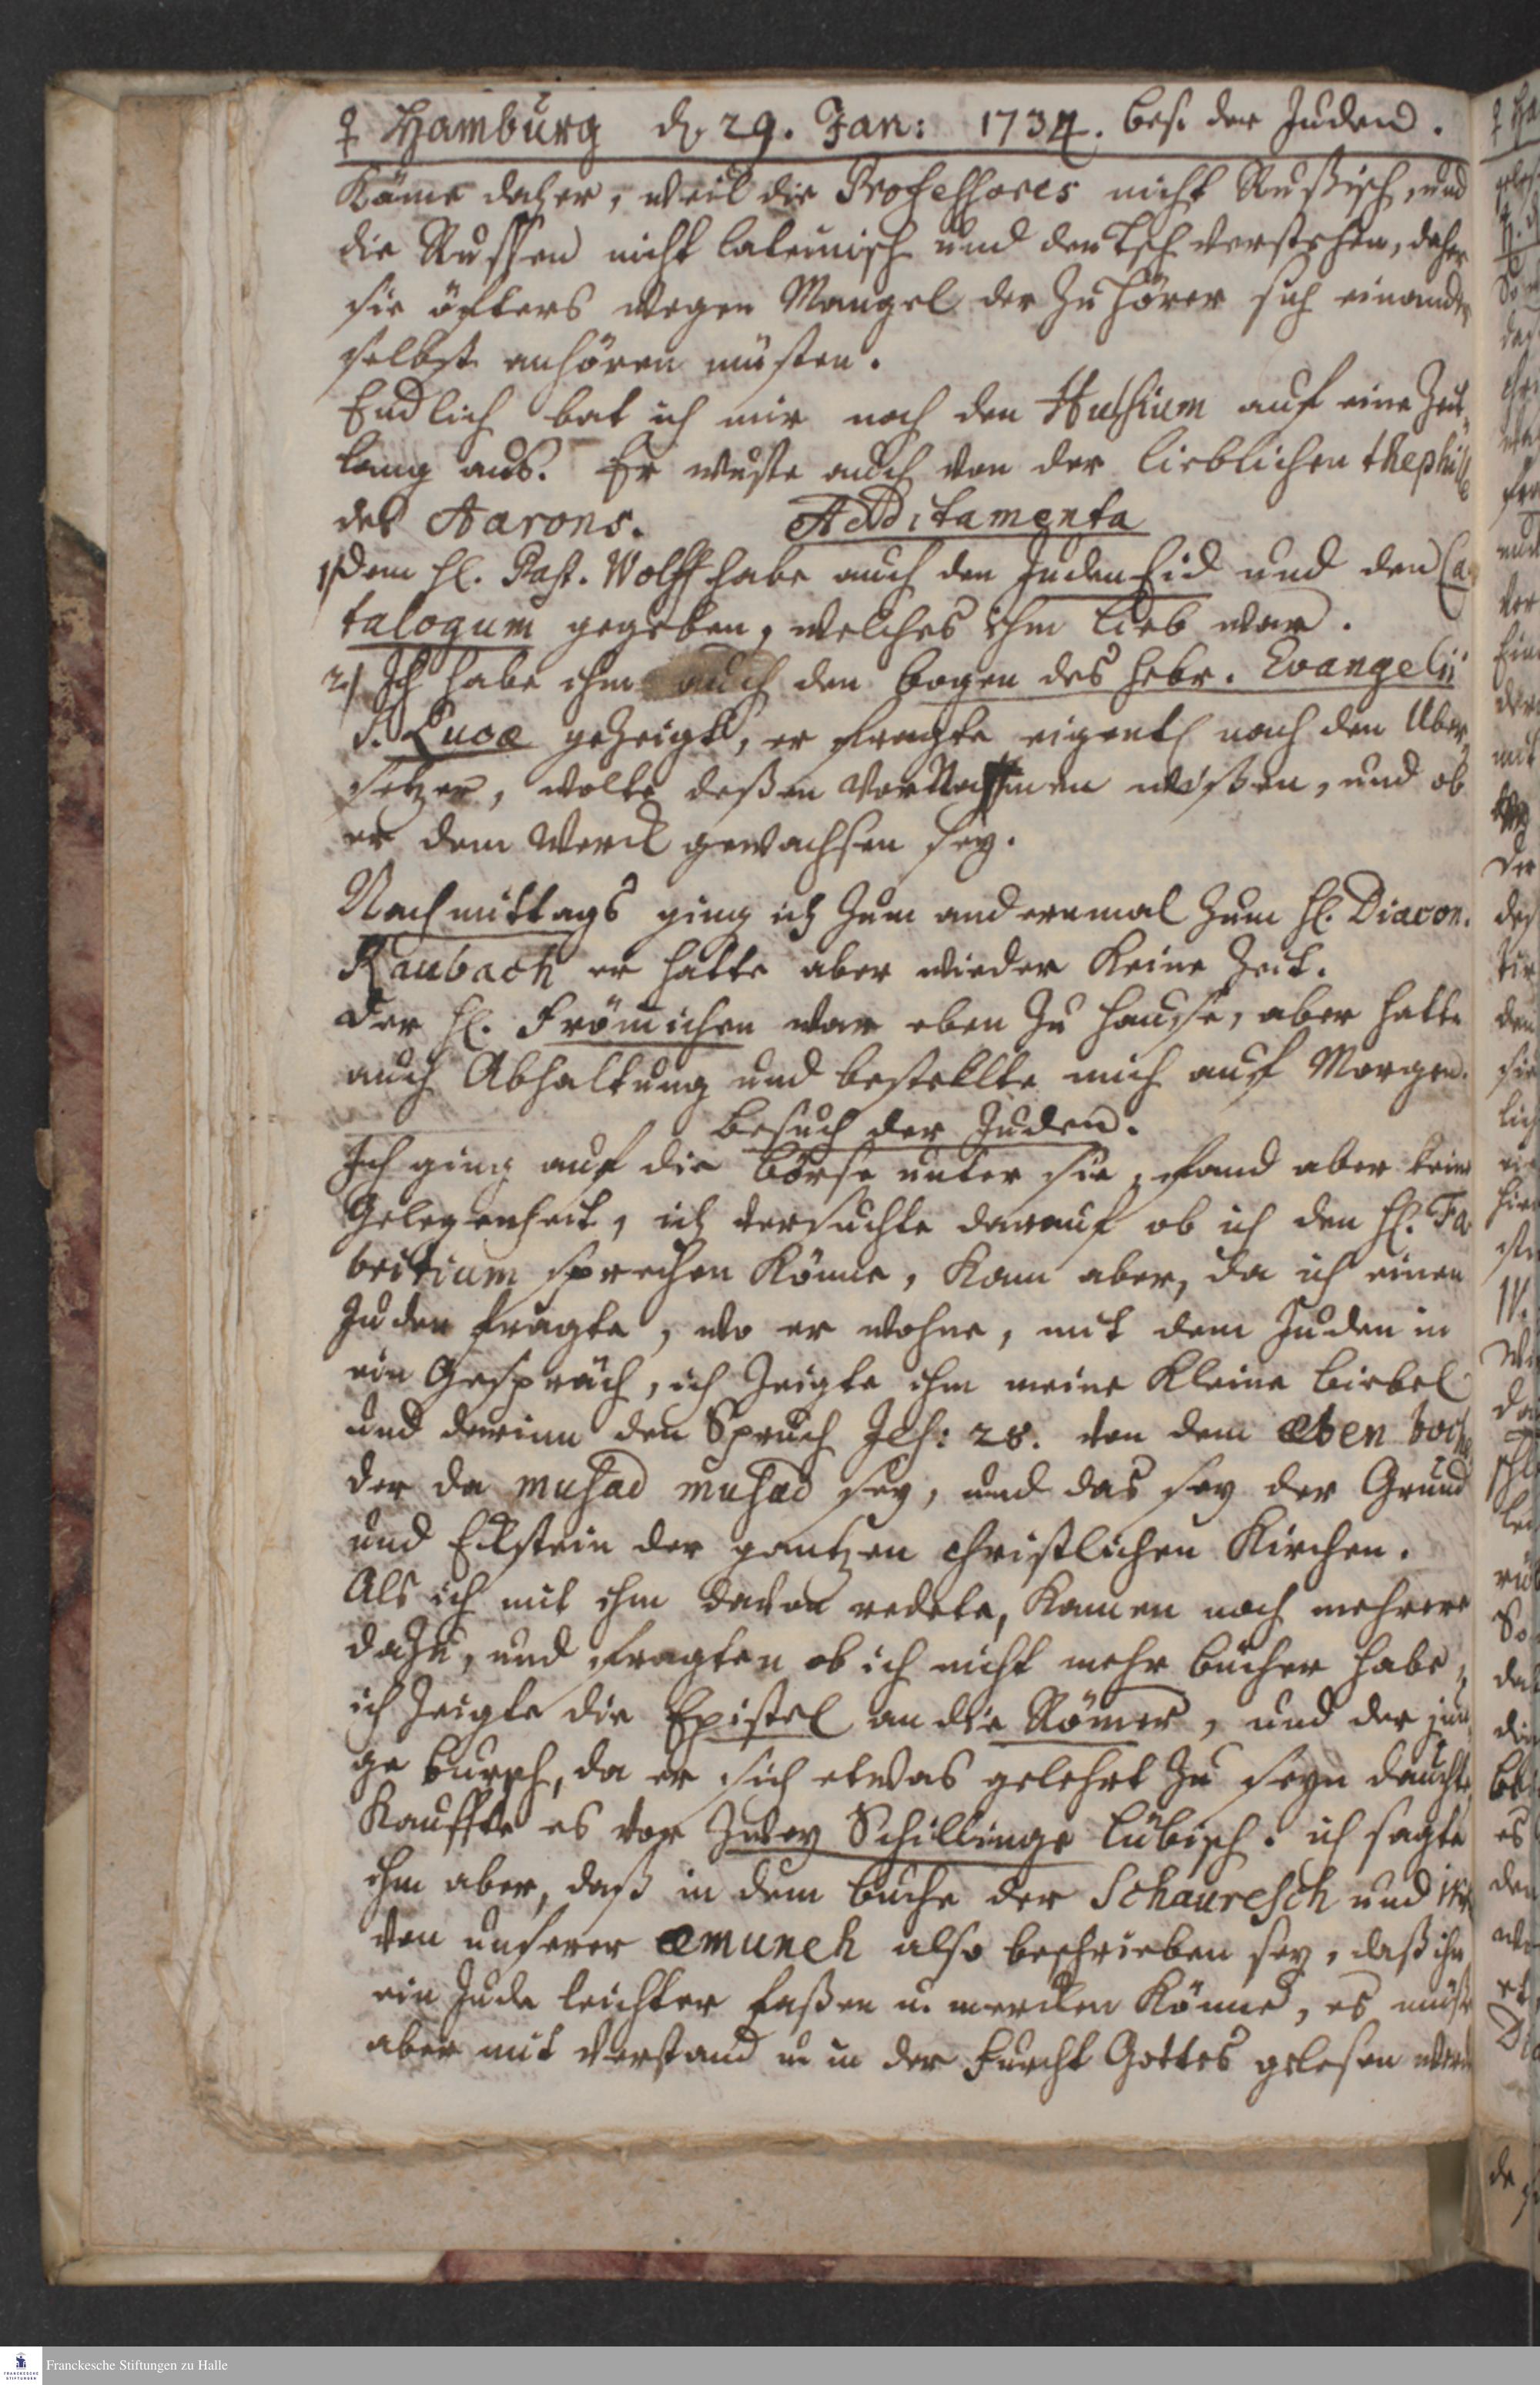 ♀ Hamburg d. 29. Jan: 1734. bes. der Juden.
käme daher, weil die Professores nicht Rußisch, und
die Russen nicht lateinisch und deutsch verstehen, daher
sie öfters wegen Mangel der Zuhörer sich einander
selbst anhören müsten.
Endlich bat ich mir noch den Hulsium auf eine Zeit
lang aus. Er wuste auch von der lieblichen thephill
des Aarons. Additamenta
1) Dem H. Past. Wolff habe auch den Juden Eid und den Ca
talogum gegeben, welches ihm lieb war.
2) Ich habe ihm auch den bogen des Hebr. Evangelii
S. Lucæ gezeigt, er fragte eigentl nach den Uber
setzer, wolte deßen Vor Nahmen wißen, und ob
er dem Werck gewachsen sey.
Nachmittags ging ich zum andernmal zum H. Diacon.
Raubach er hatte aber wieder keine Zeit.
Der H. Frömichen war eben zu Hause, aber hatte
auch Abhaltung und bestellte mich auf Morgen.
Besuch der Juden.
Ich ging auf die Börse unter sie, fand aber keine
Gelegenheit, ich versuchte darauf ob ich den H. Fa
britium sprechen könne, kam aber, da ich einen
Juden fragte, wo er wohne, mit dem Juden in
ein Gespräch, ich zeigte ihm meine kleine Biebel
und darinn den Spruch Jes: 28. von dem æben boch
der da musad musad sey, und das sey der Grund
und Eckstein der gantzen christlichen Kirchen.
Als ich mit ihm davon redete, kamen noch mehrere
dazu, und fragten ob ich nicht mehr bücher habe,
ich zeigte die Epistel an die Römer, und der jun
ge bursch, da er sich etwas gelehrt zu seyn dauchte
kauffte es vor zwey Schillinge lübisch. ich sagte
ihm aber, daß in dem buche der Schauresch und
von unserer æmuneh also beschrieben sey, daß ihn
ein Jude leichter faßen u. mercken könne, es müste
aber mit Verstand u. in der Furcht Gottes gelesen werd
Franckesche Stiftungen zu Halle